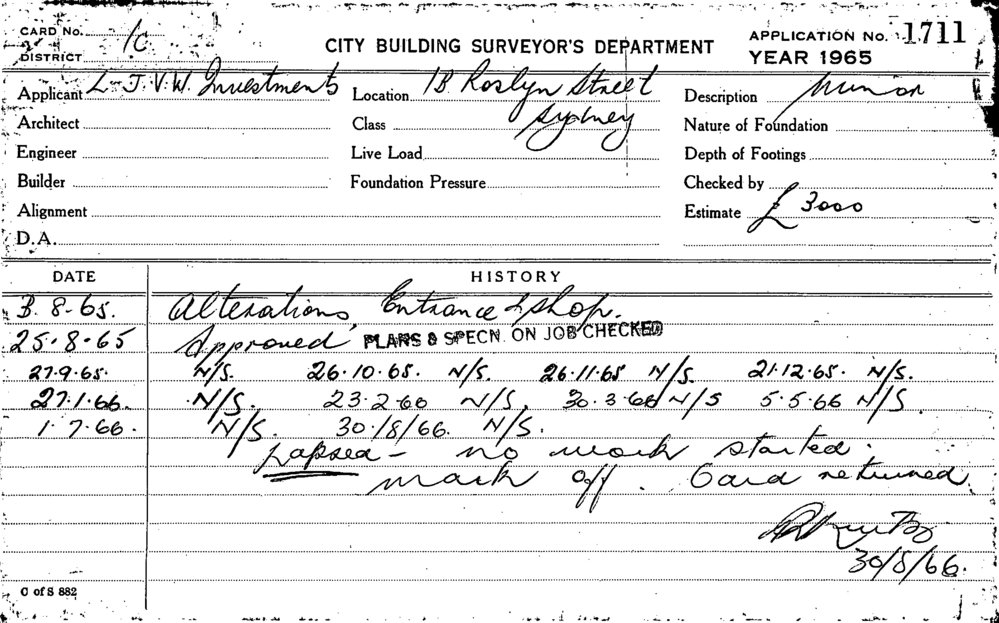 CARD No. 1C
CITY BUILDING SURVEYOR'S DEPARTMENT
APPLICATION No. 1711
DISTRICT
YEAR 1965
Applicant L. J. V. W. Investments Location 18 Roslyn Street Description Minor
Architect Class Sydney Nature of Foundation
Engineer Live Load Depth of Footings
Builder Foundation Pressure Checked by
Alignment Estimate £ 3000
D.A.
DATE HISTORY
3. 8-65. Alterations, Entrance & shop.
25.8.65 Approved PLANS & SPECN. ON JOB CHECKED
27.9.65. N/S. 26.10.65. N/S. 26.11.65 N/S. 21.12.65. N/S.
27.1.66. N/S. 23.2.66 N/S. 30.3.66 N/S 5.5.66 N/S
1.7.66. N/S. 30/8/66. N/S.
Lapsed - no work started.
mark off. Card returned.
30/8/66.
C of S 882